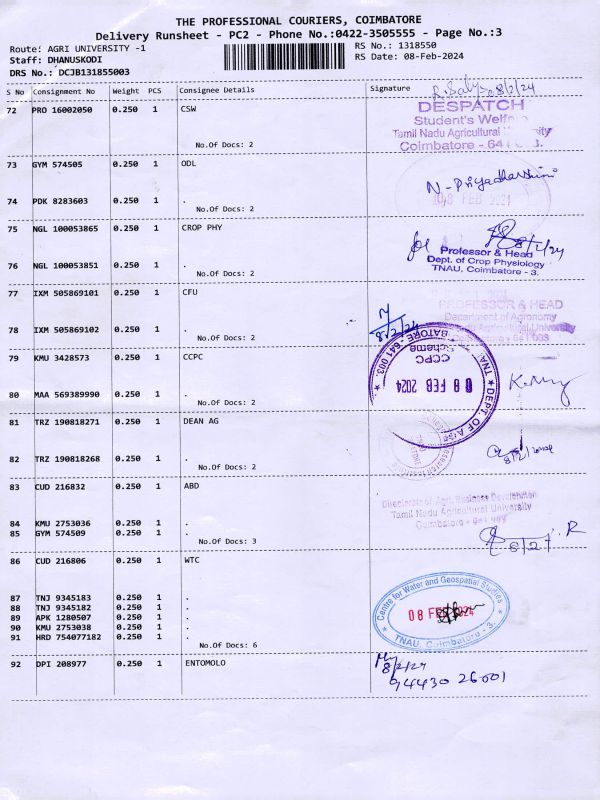 THE PROFESSIONAL COURIERS, COIMBATORE
Delivery Runsheet - PC2 - Phone No.:0422-3505555 - Page No.:3
Route: AGRI UNIVERSITY -1
RS No.: 1318550
Staff: DHANUSKODI
RS Date: 08-Feb-2024
DRS No.: DCJB131855003
S No Consignment No Weight PCS Consignee Details Signature
8/2/24
72 PRO 16002050 0.250 1 CSW
DESPATCH
Student's
Tamil Nadu Agricultural
No.Of Docs: 2
Coimbatore - 641
73 GYM 574505 0.250 1 ODL
N-Priyadharshini
08 FEB 2024
74 PDK 8283603 0.250 1 .
No.Of Docs: 2
75 NGL 100053865 0.250 1 CROP PHY
8/2/24
Professor & Head
Dept. of Crop Physiology
TNAU, Coimbatore - 3.
76 NGL 100053851 0.250 1 .
No.Of Docs: 2
77 IXM 505869101 0.250 1 CFU
PROFESSOR & HEAD
Department of Agronomy
Agricultural University
641 003
8/2/24
78 IXM 505869102 0.250 1 .
No.Of Docs: 2
79 KMU 3428573 0.250 1 CCPC
BATORE. 641 003.
TNAU
DEPT. OF
CCPC
Scheme
08 FEB 2024
80 MAA 569389990 0.250 1 .
No.Of Docs: 2
81 TRZ 190818271 0.250 1 DEAN AG
82 TRZ 190818268 0.250 1 .
8/2/2024
No.Of Docs: 2
83 CUD 216832 0.250 1 ABD
Directorate of Agri Business Development
Tamil Nadu Agricultural University
Coimbatore - 641 003
84 KMU 2753036 0.250 1 .
85 GYM 574509 0.250 1 .
No.Of Docs: 3
R
86 CUD 216806 0.250 1 WTC
Centre for Water and Geospatial Studies
08 FEB 2024
TNAU, Coimbatore - 3.
87 TNJ 9345183 0.250 1 .
88 TNJ 9345182 0.250 1 .
89 APK 1280507 0.250 1 .
90 KMU 2753038 0.250 1 .
91 HRD 754077182 0.250 1 .
No.Of Docs: 6
92 DPI 208977 0.250 1 ENTOMOLO
8/2/24
94430 26001